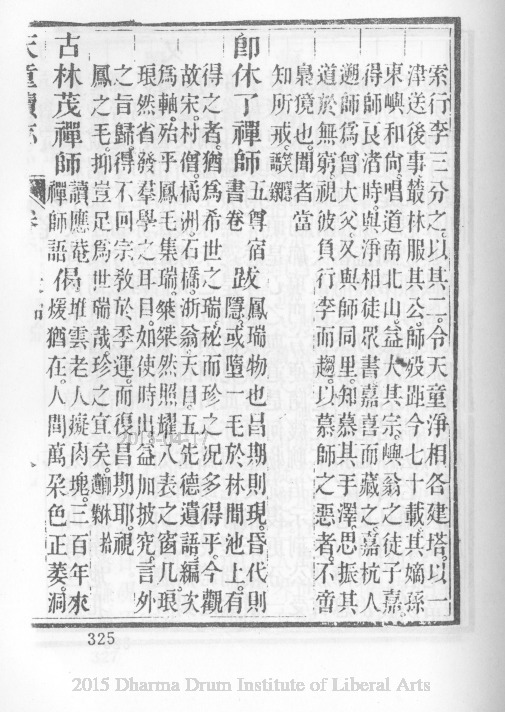 索行李三分之以其二令天童淨相各建塔以一
津送後事叢林服其公師歿距今七十載其嫡孫
東嶼和尚唱道南北山益大其宗嶼翁之徒子嘉
得師良渚時與淨相徒眾書嘉喜而藏之嘉杭人
遡師爲曾大父又與師同里知慕其手澤思振其
道於無窮視彼負行李而趨以慕師之惡者不啻
梟獍也聞者當
知所戒
卽休了禪師 書五尊宿跋鳳瑞物也昌期則現昏代則
卷隱或墮一毛於林間池上有
得之者猶爲希世之瑞秘而珍之况多得乎今觀
故宋村僧橘洲石橋浙翁天目五先德遺語編次
爲軸殆乎鳳毛集瑞燦燦然照耀八表之窗几琅
琅然省發羣學之耳目如使時出益加披究言外
之旨歸得不回宗敎於季運而復昌期耶視
鳳之毛抑豈足爲世瑞哉珍之宜矣
古林茂禪師 讀應菴禪師語 偈堆雲老人擁肉塊三百年來
煖猶在人間萬朵色正萎洞
天童
325
2015 Dharma Drum Institute of Liberal Arts